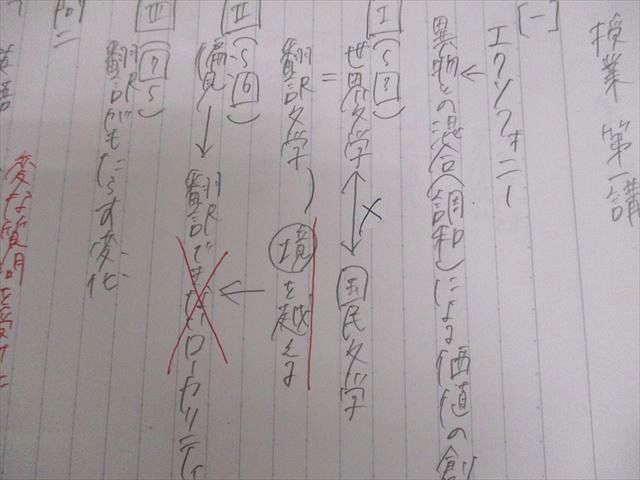 授業 第一講
[一]
エクソフォニー
異物との混合(調和)による価値の創
Ⅰ(S1)
世界文学 ↔ 国民文学
=
翻訳文学) 境を越える
Ⅱ(S6)
偏見 → 翻訳できないローカリティ
Ⅲ(9S)
翻訳がもたらす変化
P0 二
英語
変な質問を受けた